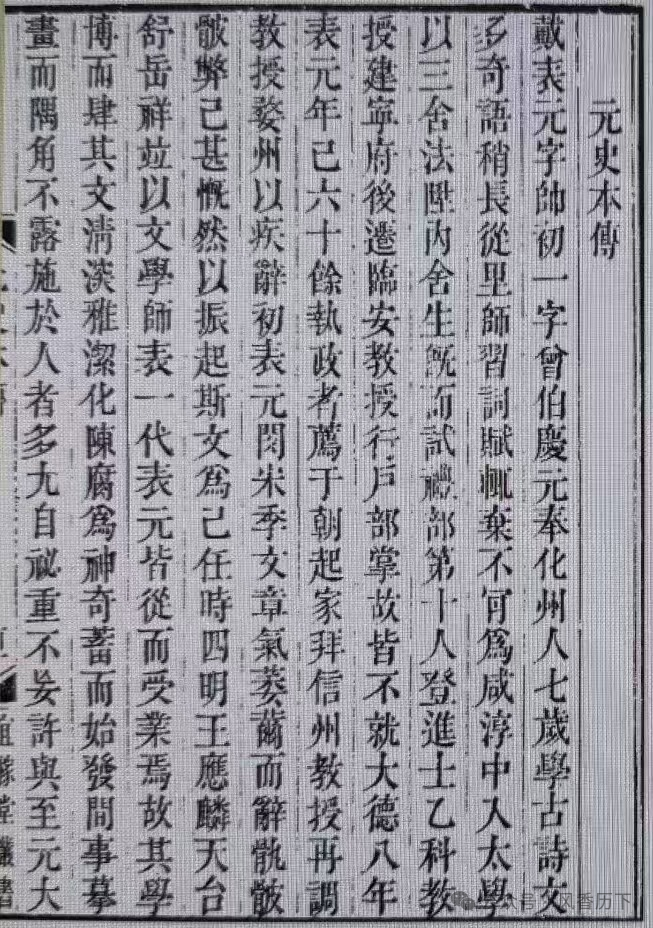 元史本傳
戴表元字帥初一字曾伯慶元奉化州人七歲學古詩文
多奇語稍長從里師習詞賦輒棄不肯爲咸淳中入太學
以三舍法陞內舍生旣而試禮部第十人登進士乙科教
授建寧府後遷臨安教授行戶部掌故皆不就大德八年
表元年已六十餘執政者薦于朝起家拜信州教授再調
教授婺州以疾辭初表元閔宋季文章氣萎薾而辭骫骳
骳弊已甚慨然以振起斯文爲己任時四明王應麟天台
舒岳祥竝以文學師表一代表元皆從而受業焉故其學
博而肆其文淸深雅潔化陳腐爲神奇蓄而始發間事摹
畫而隅角不露施於人者多尤自祕重不妄許與至元大
宜稼堂叢書
公众号 风香历下